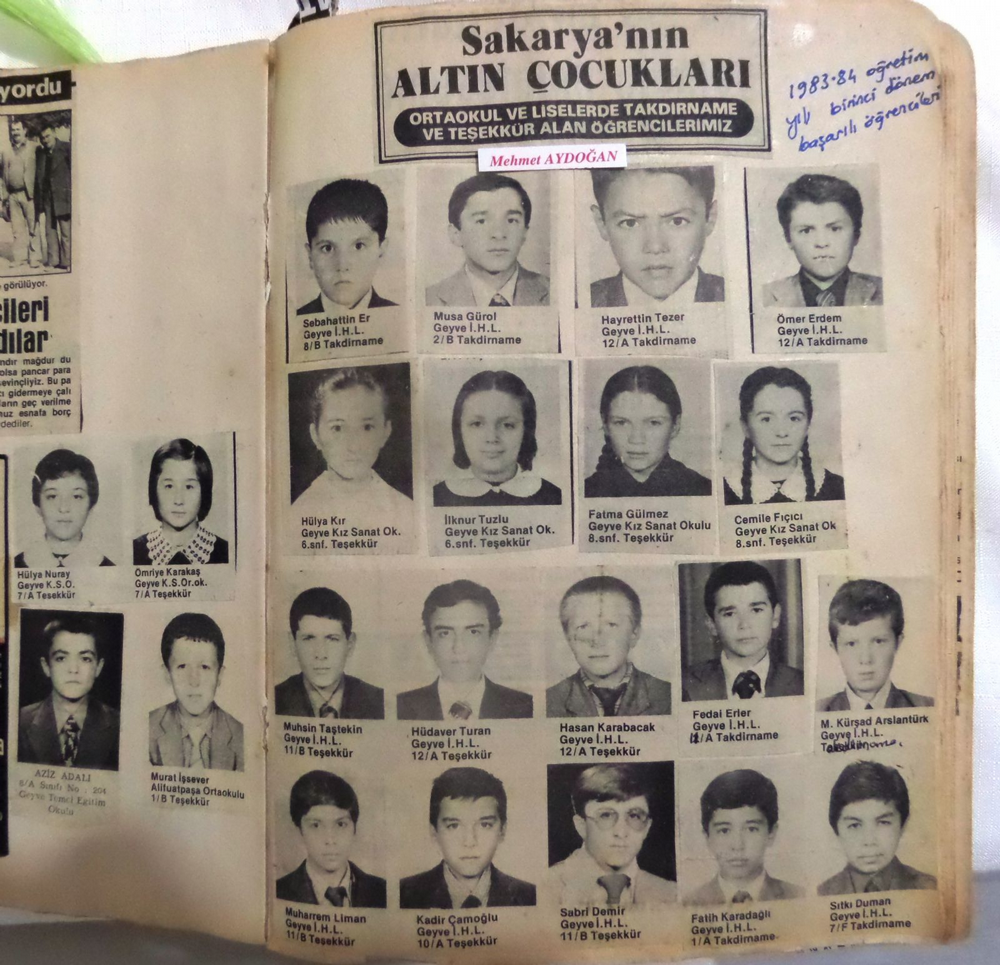 yordu
görülüyor.
cileri
dılar
ndır mağdur du
olsa pancar para
sevinçliyiz. Bu pa
cı gidermeye çalı
ların geç verilme
nuz esnafa borç
dediler.
Hülya Nuray
Geyve K.S.O.
7/A Tesekkür
Ömriye Karakaş
Geyve K.S.Or.ok.
7/A Teşekkür
AZİZ ADALI
6/A Sınıfı No . 204
Geyve Temel Eğitim
Okulu
Murat İşsever
Alifuatpaşa Ortaokulu
1/B Teşekkür
Sakarya'nın
ALTIN ÇOCUKLARI
ORTAOKUL VE LİSELERDE TAKDİRNAME
VE TEŞEKKÜR ALAN ÖĞRENCİLERİMİZ
Mehmet AYDOĞAN
1983-84 öğretim
yılı birinci dönem
başarılı öğrencileri
Sebahattin Er
Geyve İ.H.L.
8/B Takdirname
Musa Gürol
Geyve İ.H.L.
2/B Takdirname
Hayrettin Tezer
Geyve İ.H.L.
12/A Takdirname
Ömer Erdem
Geyve İ.H.L.
12/A Takdirname
Hülya Kır
Geyve Kız Sanat Ok.
6.snf. Teşekkür
İlknur Tuzlu
Geyve Kız Sanat Ok.
6.snf. Teşekkür
Fatma Gülmez
Geyve Kız Sanat Okulu
8.snf. Teşekkür
Cemile Fıçıcı
Geyve Kız Sanat Ok
8.snf. Teşekkür
Muhsin Taştekin
Geyve İ.H.L.
11/B Teşekkür
Hüdaver Turan
Geyve İ.H.L.
12/A Teşekkür
Hasan Karabacak
Geyve İ.H.L.
12/A Teşekkür
Fedai Erler
Geyve İ.H.L.
/A Takdirname
M. Kürşad Arslantürk
Geyve İ.H.L.
Muharrem Liman
Geyve İ.H.L.
11/B Teşekkür
Kadir Çamoğlu
Geyve İ.H.L.
10/A Teşekkür
Sabri Demir
Geyve İ.H.L.
11/B Teşekkür
Fatih Karadağlı
Geyve İ.H.L.
1/A Takdirname
Sıtkı Duman
Geyve İ.H.L.
7/F Takdirname